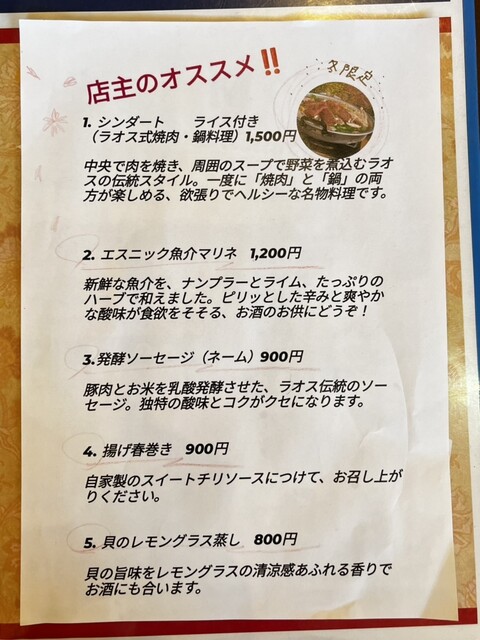 店主のオススメ‼
冬限定
1. シンダート　　ライス付き
（ラオス式焼肉・鍋料理）1,500円
中央で肉を焼き、周囲のスープで野菜を煮込むラオ
スの伝統スタイル。一度に「焼肉」と「鍋」の両
方が楽しめる、欲張りでヘルシーな名物料理です。
2. エスニック魚介マリネ　1,200円
新鮮な魚介を、ナンプラーとライム、たっぷりの
ハーブで和えました。ピリッとした辛みと爽やか
な酸味が食欲をそそる、お酒のお供にどうぞ！
3.発酵ソーセージ（ネーム）900円
豚肉とお米を乳酸発酵させた、ラオス伝統のソー
セージ。独特の酸味とコクがクセになります。
4. 揚げ春巻き　900円
自家製のスイートチリソースにつけて、お召し上が
りください。
5. 貝のレモングラス蒸し　800円
貝の旨味をレモングラスの清涼感あふれる香りで
お酒にも合います。